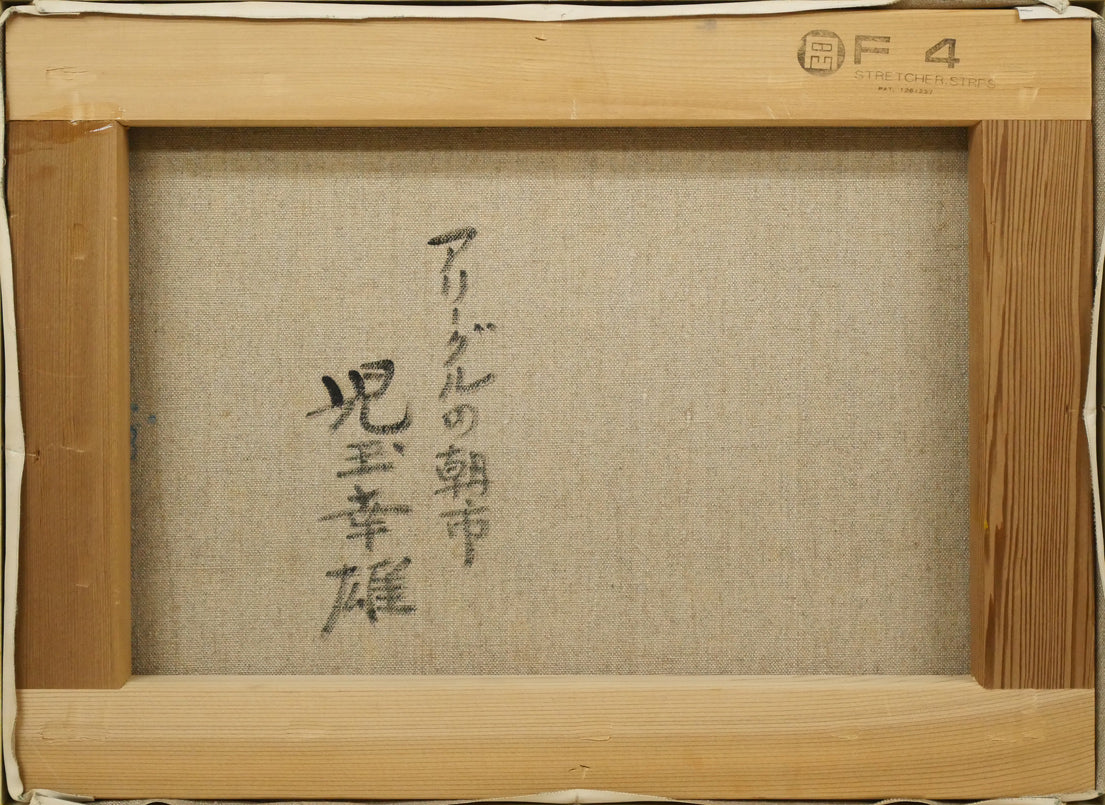 岡 F 4
STRETCHER.STRPS
PAT. 1261237
アリーグルの朝市
児玉幸雄